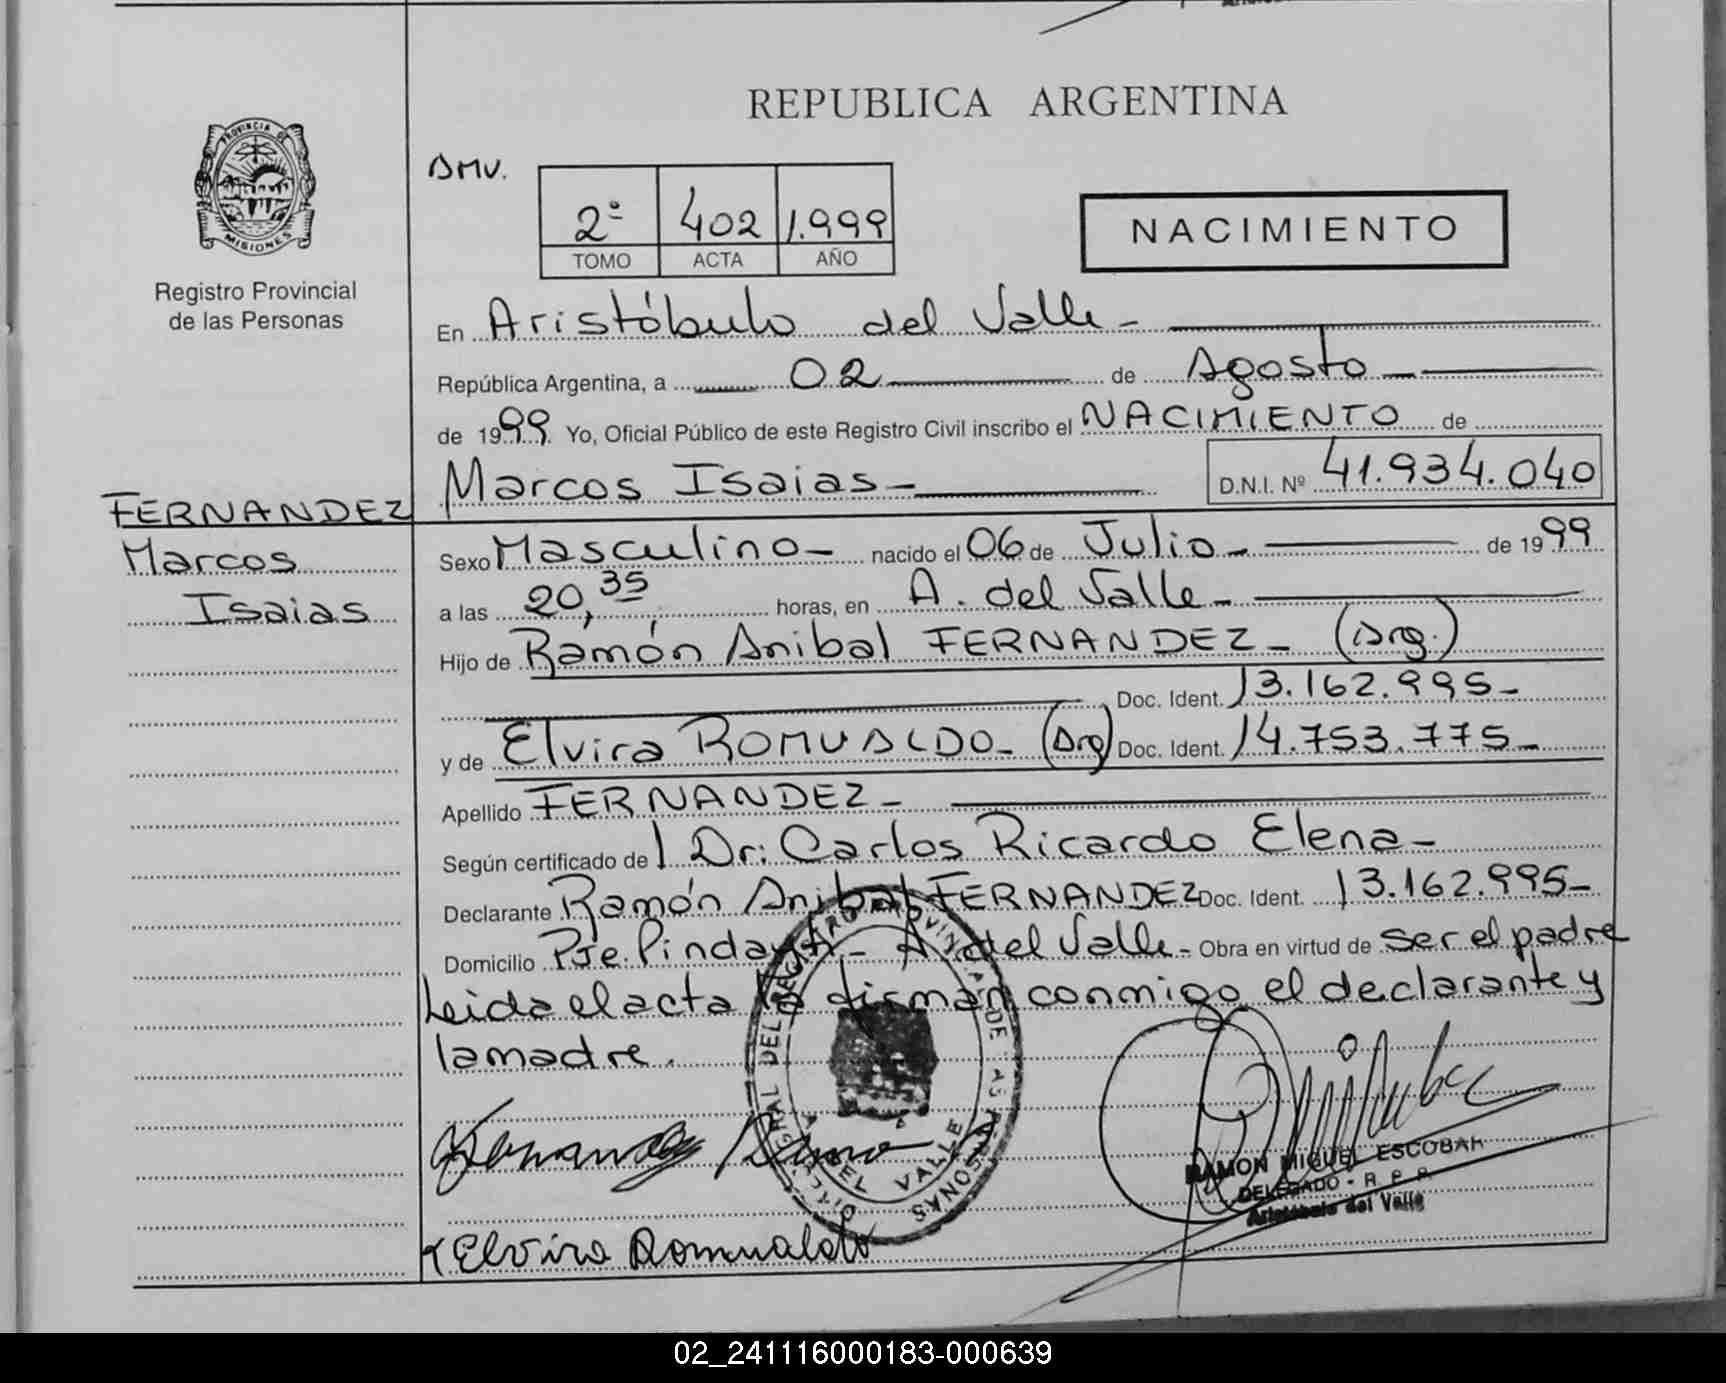 REPUBLICA ARGENTINA
PROVINCIA DE
MISIONES
Registro Provincial
de las Personas
AMV.
2º 402 1.999
TOMO ACTA AÑO
NACIMIENTO
En Aristóbulo del Valle-
República Argentina, a 02 de Agosto
de 1999. Yo, Oficial Público de este Registro Civil inscribo el NACIMIENTO de
Marcos Isaias- D.N.I. Nº 41.934.040
FERNANDEZ
Marcos
Isaias
Sexo Masculino- nacido el 06 de Julio- de 1999
a las 20,35 horas, en A. del Valle-
Hijo de Ramón Anibal FERNANDEZ- (Arg.)
Doc. Ident. 13.162.995-
y de Elvira ROMUALDO- (Arg) Doc. Ident. 14.753.775-
Apellido FERNANDEZ-
Según certificado de Dr: Carlos Ricardo Elena-
Declarante Ramón Anibal FERNANDEZ Doc. Ident. 13.162.995-
Domicilio Pje. Pindayti- A del Valle- Obra en virtud de ser el padre
Leida el acta la firman conmigo el declarante y
la madre.
Elvira Romualdo
RAMON MIGUEL ESCOBAR
DELEGADO - R. P. P.
Aristóbulo del Valle
02_241116000183-000639